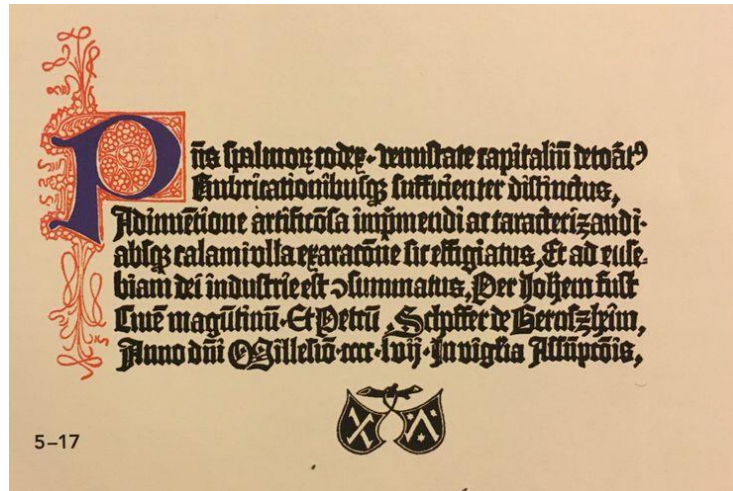 Pñs spalmoꝝ codex · venustate capitaliũ decoãtꝰ
Rubricationibusqꝫ sufficienter distinctus,
Adinuẽtione artificõsa imp̃mendi ac caracterizandi ·
absqꝫ calami vlla exaracõne sic effigiatus, Et ad euse-
biam dei industrie est ꝯsummatus, Per Joh̃em fust
Ciuẽ magũtinũ · Et Petrũ Schoffer de Gernszheim,
Anno dñi Millesiõ · cccc · lvij · In vigilia Assũpcõis,
5–17